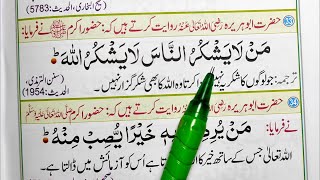 (صحیح البخاری، الحدیث: 5783)
33 حضرت ابو ہریرہ رضی اللہ تعالیٰ عنہ روایت کرتے ہیں کہ: حضور اکرم ﷺ نے فرمایا:
مَنْ لَا يَشْكُرُ النَّاسَ لَا يَشْكُرُ اللهَ
ترجمہ: جو لوگوں کا شکریہ نہیں کرتا وہ اللہ کا بھی شکر گزار نہیں۔ (سنن الترمذی، الحدیث: 1954)
34 حضرت ابو ہریرہ رضی اللہ تعالیٰ عنہ روایت کرتے ہیں کہ: حضور اکرم ﷺ نے فرمایا:
مَنْ يُرِدِ بِهٖ خَيْرًا يُّصِبْ مِنْهُ
اللہ تعالیٰ جس کے ساتھ خیر کا ہے اُس کو آزمائش میں ڈالتا ہے۔